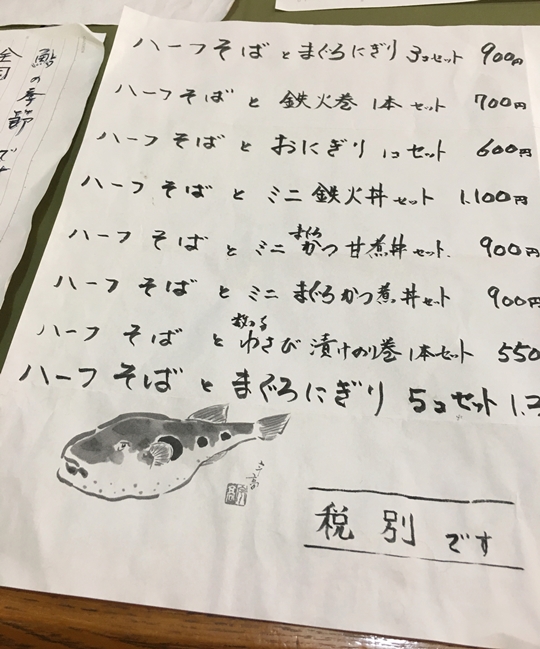 ハーフそばとまぐろにぎり3コセット 900円
ハーフそばと鉄火巻1本セット 700円
ハーフそばとおにぎり1コセット 600円
ハーフそばとミニ鉄火丼セット 1.100円
まぐろ
ハーフそばとミニかつ甘煮丼セット 900円
ハーフそばとミニまぐろかつ煮丼セット 900円
ハーフそばとわさび漬けのり巻1本セット 550
ハーフそばとまぐろにぎり5コセット 1.
税別です
鮎の季節です
全国